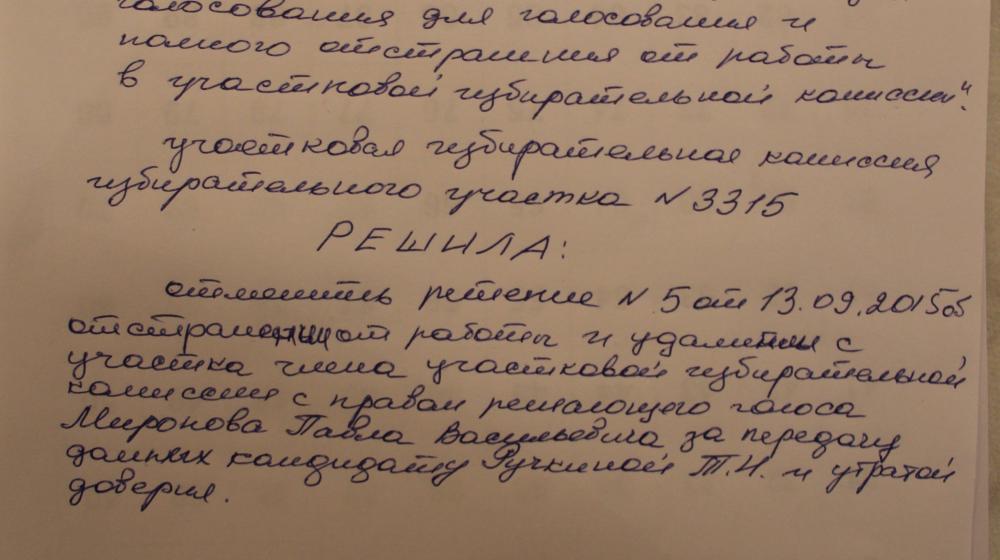 голосования для голосования и
полного отстранения от работы
в участковой избирательной комиссии".
участковая избирательная комиссия
избирательного участка N 3315
РЕШИЛА:
отменить решение N 5 от 13.09.2015 об
отстранении от работы и удалении с
участка члена участковой избирательной
комиссии с правом решающего голоса
Миронова Павла Васильевича за передачу
данных кандидату Ручкиной Т.Н. и утратой
доверия.